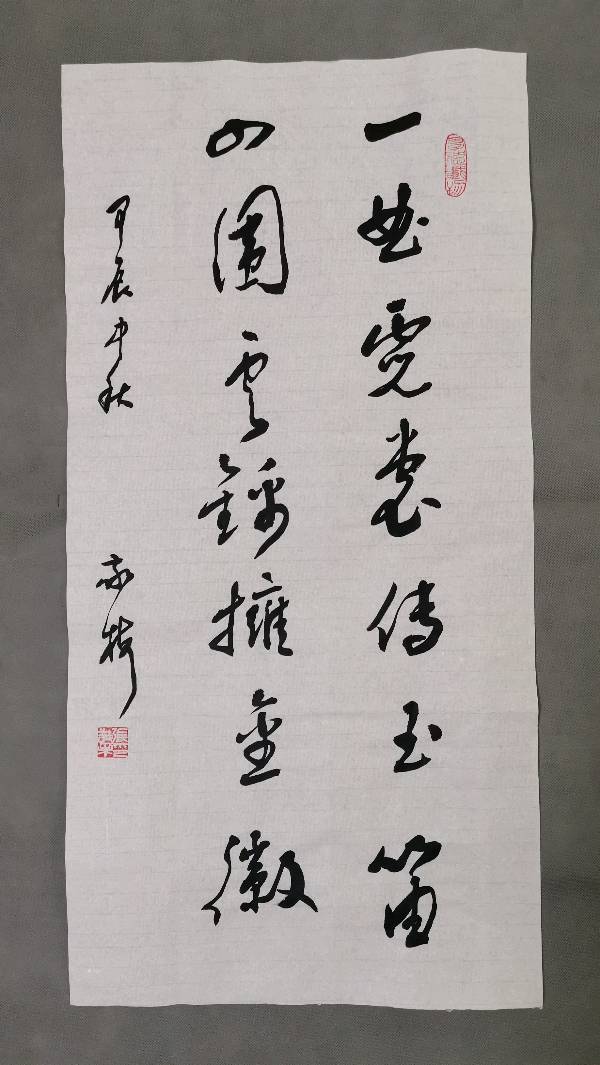 一曲霓裳传玉笛
四围云锦拥金徽
甲辰中秋